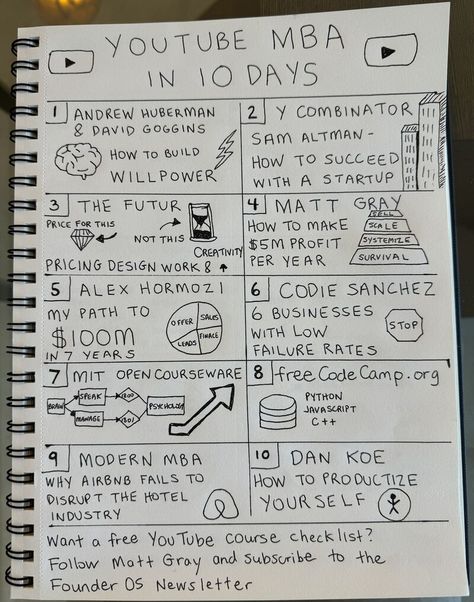 YOUTUBE MBA
IN 10 DAYS
1 ANDREW HUBERMAN
& DAVID GOGGINS
HOW TO BUILD
WILLPOWER
2 Y COMBINATOR
SAM ALTMAN -
HOW TO SUCCEED
WITH A STARTUP
3 THE FUTUR
PRICE FOR THIS
NOT THIS
CREATIVITY
PRICING DESIGN WORK &
4 MATT GRAY
HOW TO MAKE
$5M PROFIT
PER YEAR
SELL
SCALE
SYSTEMIZE
SURVIVAL
5 ALEX HORMOZI
MY PATH TO
$100M
IN 7 YEARS
OFFER
SALES
LEADS
6 CODIE SANCHEZ
6 BUSINESSES
WITH LOW
FAILURE RATES
STOP
7 MIT OPENCOURSEWARE
BRAIN
SPEAK
MANAGE
PSYCHOLOGY
8 freeCodeCamp.org
PYTHON
JAVASCRIPT
C++
9 MODERN MBA
WHY AIRBNB FAILS TO
DISRUPT THE HOTEL
INDUSTRY
10 DAN KOE
HOW TO PRODUCTIZE
YOURSELF
Want a free YouTube course checklist?
Follow Matt Gray and subscribe to the
Founder OS Newsletter